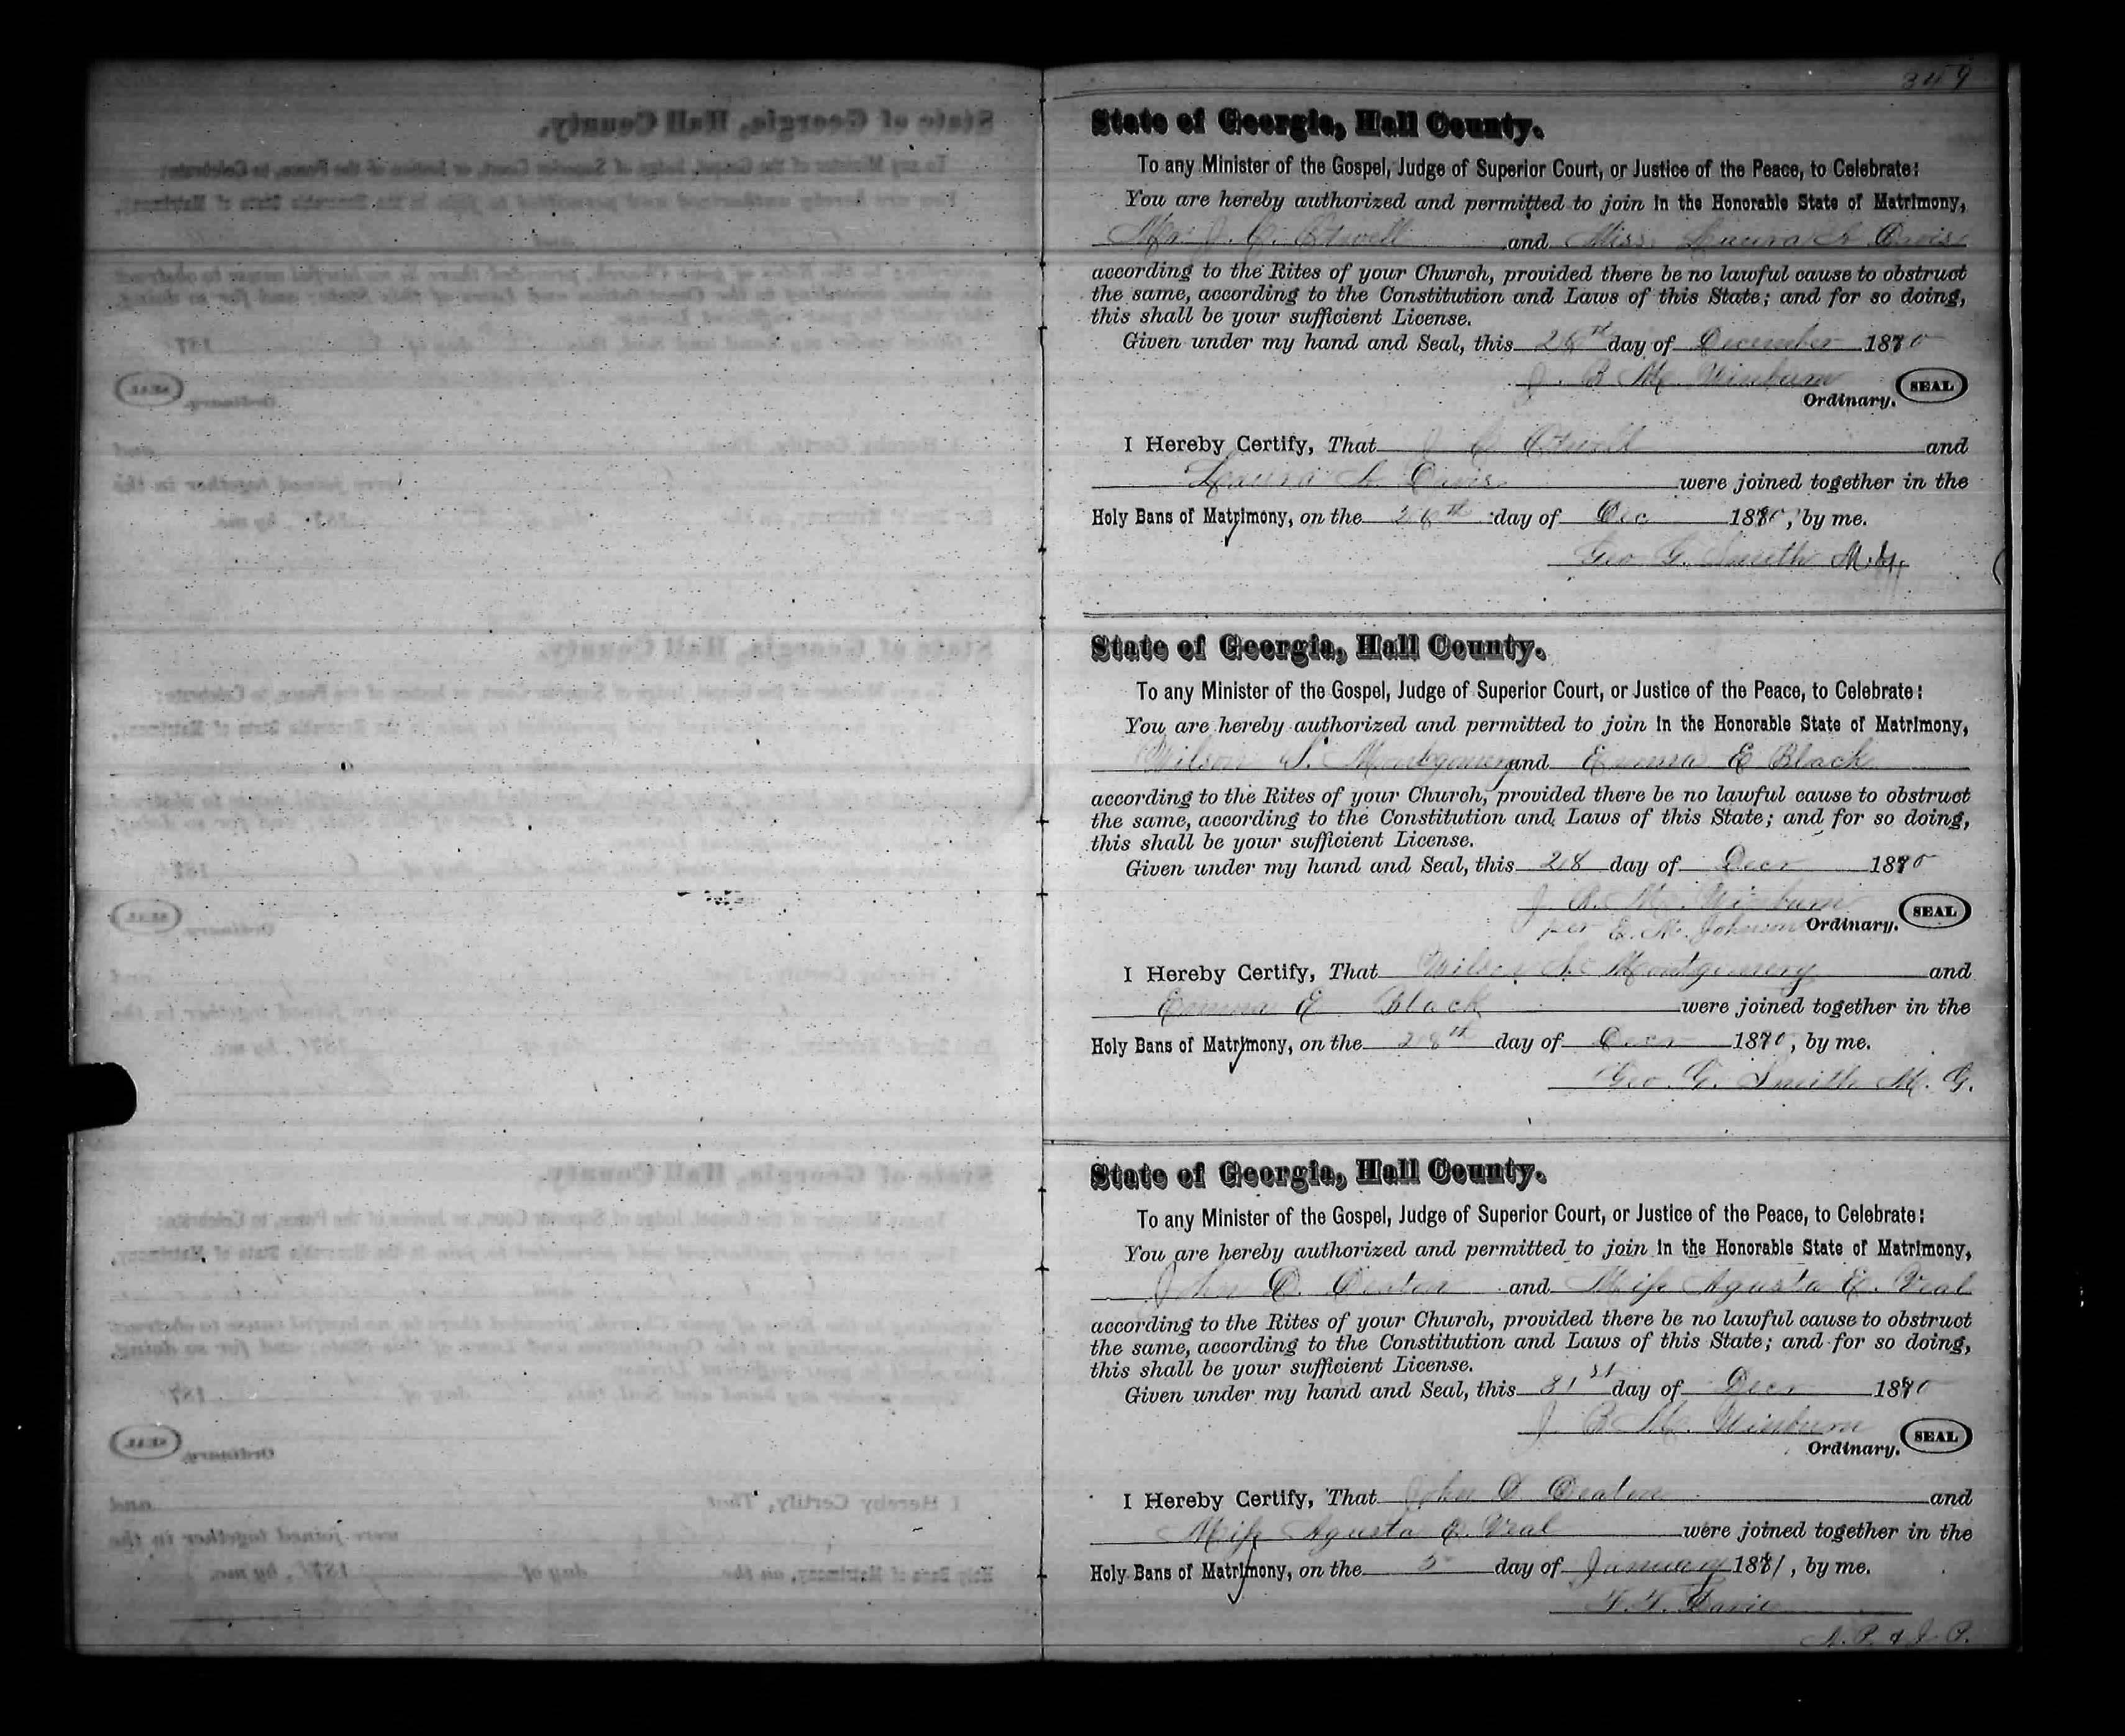 349
State of Georgia, Hall County.
To any Minister of the Gospel, Judge of Superior Court, or Justice of the Peace, to Celebrate:
You are hereby authorized and permitted to join in the Honorable State of Matrimony,
Mr. J. C. Otwell and Miss Laura A Davis
according to the Rites of your Church, provided there be no lawful cause to obstruct
the same, according to the Constitution and Laws of this State; and for so doing,
this shall be your sufficient License.
Given under my hand and Seal, this day of December 1880
J. B. M. Winburn SEAL
Ordinary.
I Hereby Certify, That J C Otwell and
Laura A. Davis were joined together in the
Holy Bans of Matrimony, on the 26th day of Dec 1880, by me.
Geo G. Smith M.G.
State of Georgia, Hall County.
To any Minister of the Gospel, Judge of Superior Court, or Justice of the Peace, to Celebrate:
You are hereby authorized and permitted to join in the Honorable State of Matrimony,
Wilson S. Montgomery and Emma E Black
according to the Rites of your Church, provided there be no lawful cause to obstruct
the same, according to the Constitution and Laws of this State; and for so doing,
this shall be your sufficient License.
Given under my hand and Seal, this 28 day of Decr 1880
J. B. M. Winburn SEAL
per E. M. Johnson Ordinary.
I Hereby Certify, That Wilson S. Montgomery and
Emma E Black were joined together in the
Holy Bans of Matrimony, on the 28th day of Decr 1880, by me.
Geo. G. Smith M. G.
State of Georgia, Hall County.
To any Minister of the Gospel, Judge of Superior Court, or Justice of the Peace, to Celebrate:
You are hereby authorized and permitted to join in the Honorable State of Matrimony,
John D. Deaton and Miss Agusta E. Veal
according to the Rites of your Church, provided there be no lawful cause to obstruct
the same, according to the Constitution and Laws of this State; and for so doing,
this shall be your sufficient License.
Given under my hand and Seal, this 31st day of Decr 1880
J. B. M. Winburn SEAL
Ordinary.
I Hereby Certify, That John D Deaton and
Miss Agusta E. Veal were joined together in the
Holy Bans of Matrimony, on the 5 day of January 1881, by me.
F. F. Davie
N. P. & J. P.